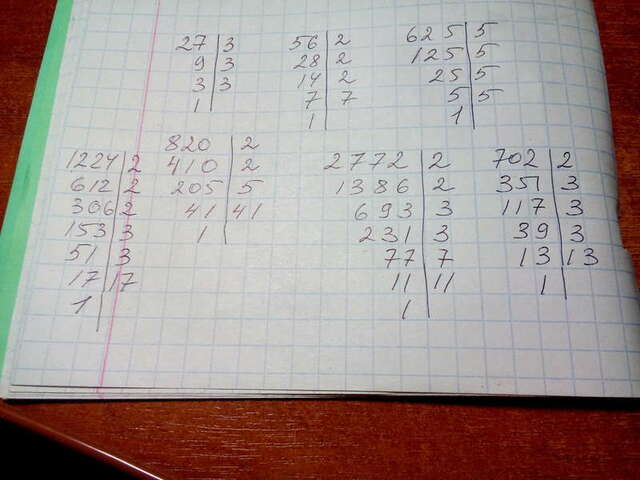 27 | 3
9 | 3
3 | 3
1
56 | 2
28 | 2
14 | 2
7 | 7
1
625 | 5
125 | 5
25 | 5
5 | 5
1
1224 | 2
612 | 2
306 | 2
153 | 3
51 | 3
17 | 17
1
820 | 2
410 | 2
205 | 5
41 | 41
1
2772 | 2
1386 | 2
693 | 3
231 | 3
77 | 7
11 | 11
1
702 | 2
351 | 3
117 | 3
39 | 3
13 | 13
1